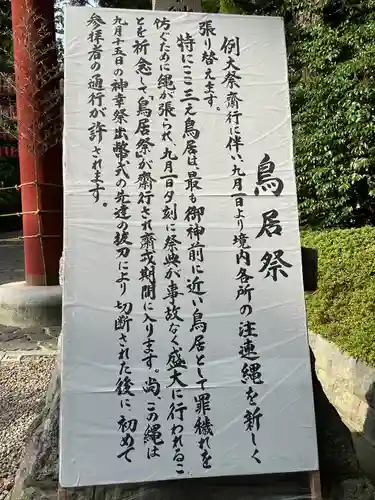 鳥居祭
例大祭斎行に伴い、九月一日より境内各所の注連縄を新しく
張り替えます。
特にここ三之鳥居は最も御神前に近い鳥居として罪穢れを
防ぐために縄が張られ、九月一日夕刻に祭典が事故なく盛大に行われるこ
とを祈念し「鳥居祭」が斎行され斎戒期間に入ります。尚、この縄は
九月十五日の神幸祭出御式の先達の抜刀により切断された後に、初めて
参拝者の通行が許されます。